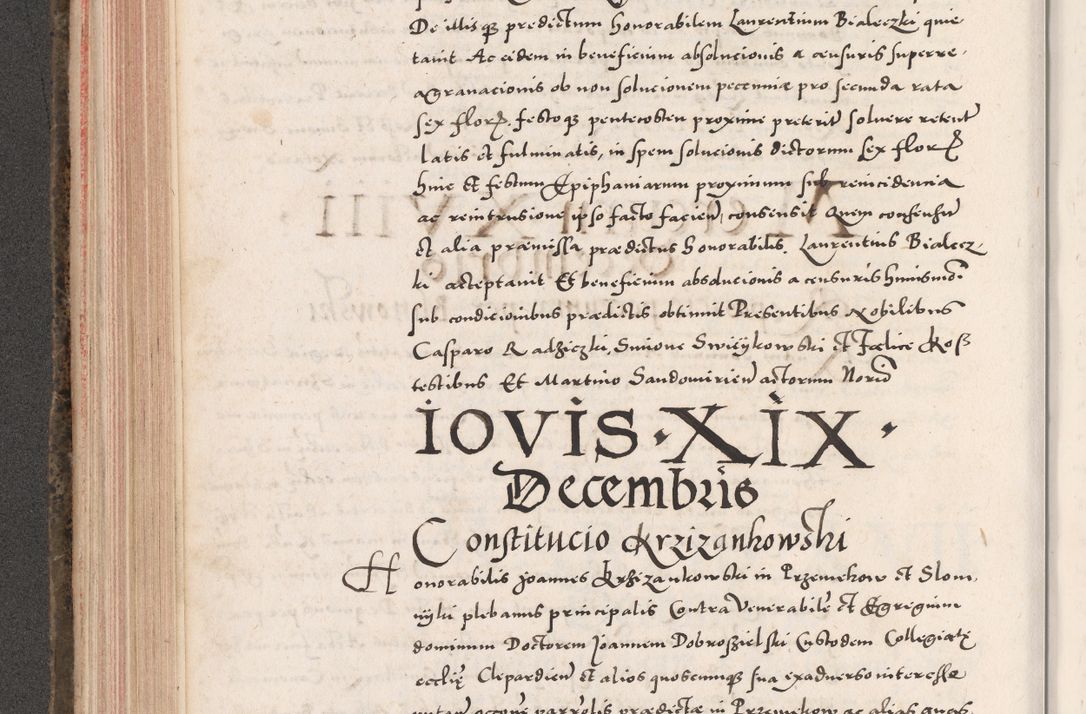 De illisq₃ predictum honorabilem Laurentium Bialeczki quie
tauit Ac eidem in beneficium absolucionis a censuris superre,
agrauacionis ob non solucionem pecuniæ pro secunda rata
sex flor festoq₃ pentecosten proxime preterit soluere retent
latis et fulminatis, in spem solucionis dictorum sex flor
hinc et festum Epiphaniarum proximum sub reincidencia
ac reintrusione ipso facto facien, consensit Quem consensum
et alia præmissa prædictus honorabilis, Laurentius Bialecz,
ki acceptauit Et beneficium absolucionis a censuris huiusmo
sub condicionibus prædictis obtinuit Presentibus Nobilibus
Casparo Radziczki, Simone Swieykowski et Fælice Kosz
testibus Et Martino Sandomirien actorum Norio
IOVIS · XIX ·
Decembris
Constitucio Krzizankowski
Honorabilis Joannes Krzizankowski in Przemekow et Slom,
nyki plebanus principalis Contra Venerabile et Egregium
dominum Doctorem Joannem Dobroszielski Custodem Collegiatę
ecclię Clepardien et alios quoscumq₃ sua exaduerso interesse
putan accone parrolis prædictæ in Przemekow ac alias quas,